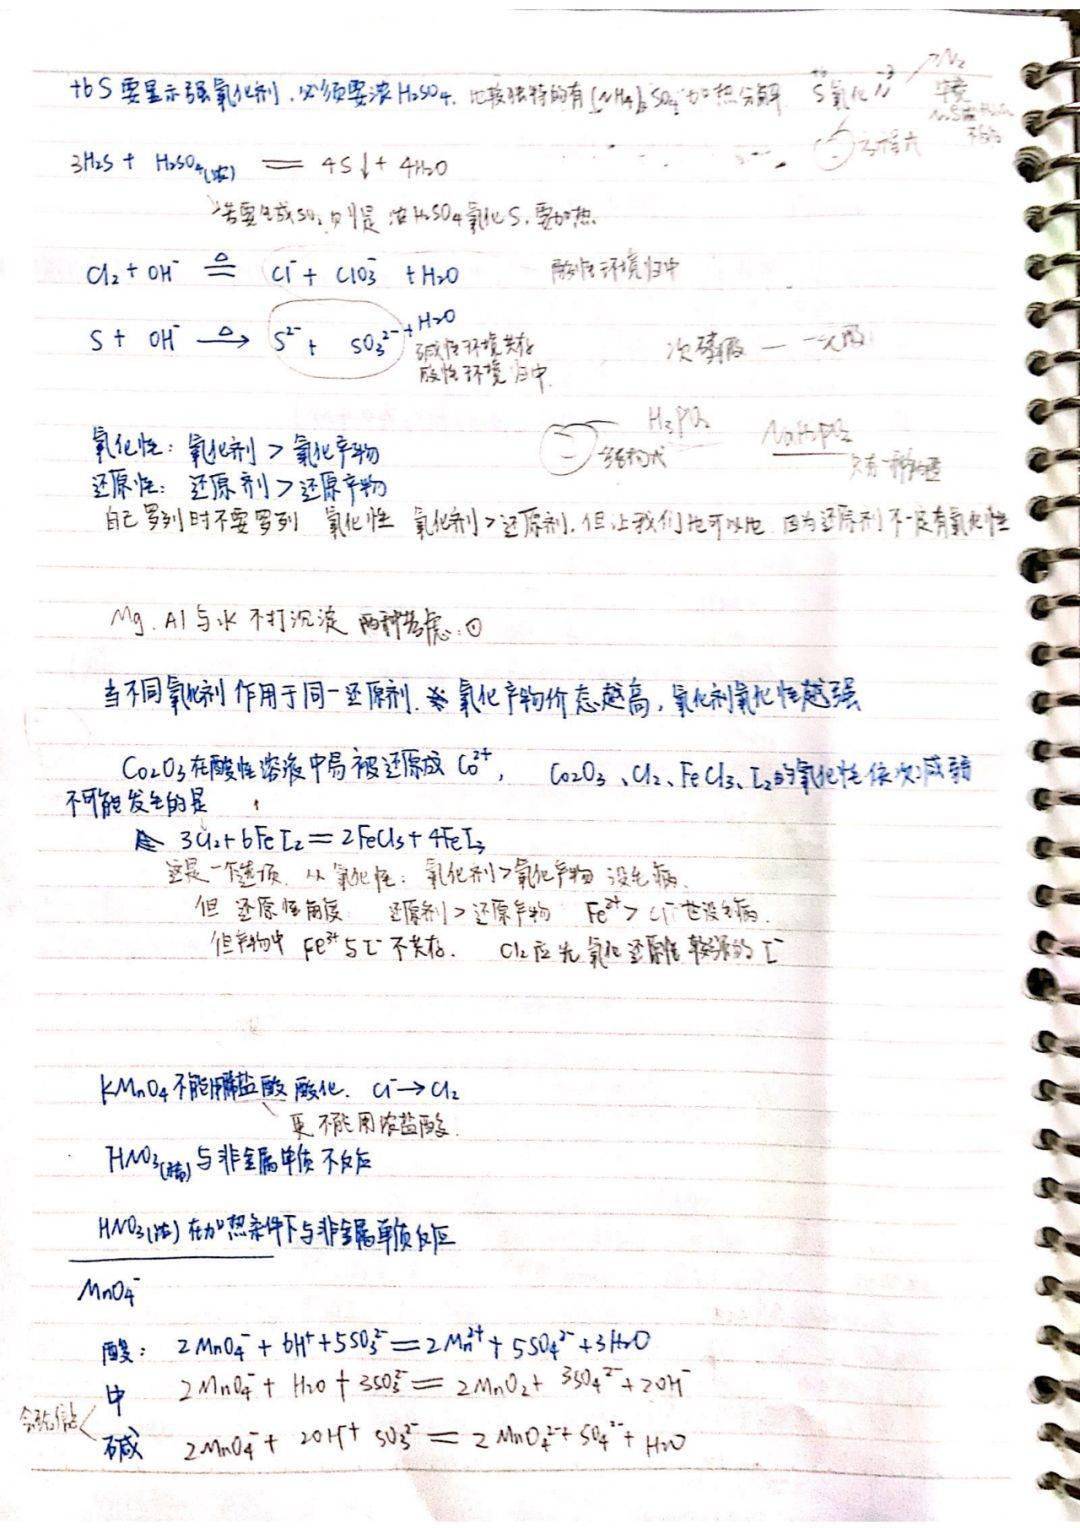 +6 S 要显示强氧化剂，必须要浓 H₂SO₄. 比较独特的有 (NH₄)₂SO₄ 加热分解 S 氧化 N → N₂
方程式
3H₂S + H₂SO₄(浓) == 4S↓ + 4H₂O
若要生成SO₂ 则是 浓H₂SO₄氧化S，要加热.
Cl₂ + OH⁻ ≜ Cl⁻ + ClO₃⁻ + H₂O 酸性环境归中
S + OH⁻ —△→ S²⁻ + SO₃²⁻ + H₂O
碱性环境共存
酸性环境归中. 次磷酸 — 一元酸
H₃PO₂ NaH₂PO₂
结构式 只有一种
氧化性：氧化剂 > 氧化产物
还原性：还原剂 > 还原产物
自己罗列时不要罗列 氧化性 氧化剂>还原剂. 但让我们也可以 因为还原剂不一定有氧化性
Mg. Al 与水 不打沉淀 两种考虑.
当不同氧化剂作用于同一还原剂. 氧化产物价态越高，氧化剂氧化性越强
Co₂O₃在酸性溶液中易被还原成 Co²⁺， Co₂O₃、Cl₂、FeCl₃、I₂的氧化性依次减弱
不可能发生的是
3Cl₂ + 6FeI₂ = 2FeCl₃ + 4FeI₃
这是一个选项. 从氧化性：氧化剂>氧化产物 没毛病.
但 还原性角度 还原剂>还原产物 Fe²⁺ > Cl⁻ 也没毛病.
但产物中 Fe³⁺与I⁻不共存. Cl₂应先氧化还原性较强的 I⁻
KMnO₄不能用稀盐酸酸化. Cl⁻→Cl₂
更不能用浓盐酸.
HNO₃(稀)与非金属单质不反应
HNO₃(浓)在加热条件下与非金属单质反应
MnO₄⁻
酸： 2MnO₄⁻ + 6H⁺ + 5SO₃²⁻ = 2Mn²⁺ + 5SO₄²⁻ + 3H₂O
中 2MnO₄⁻ + H₂O + 3SO₃²⁻ = 2MnO₂ + 3SO₄²⁻ + 2OH⁻
碱 2MnO₄⁻ + 2OH⁻ + SO₃²⁻ = 2MnO₄²⁻ + SO₄²⁻ + H₂O